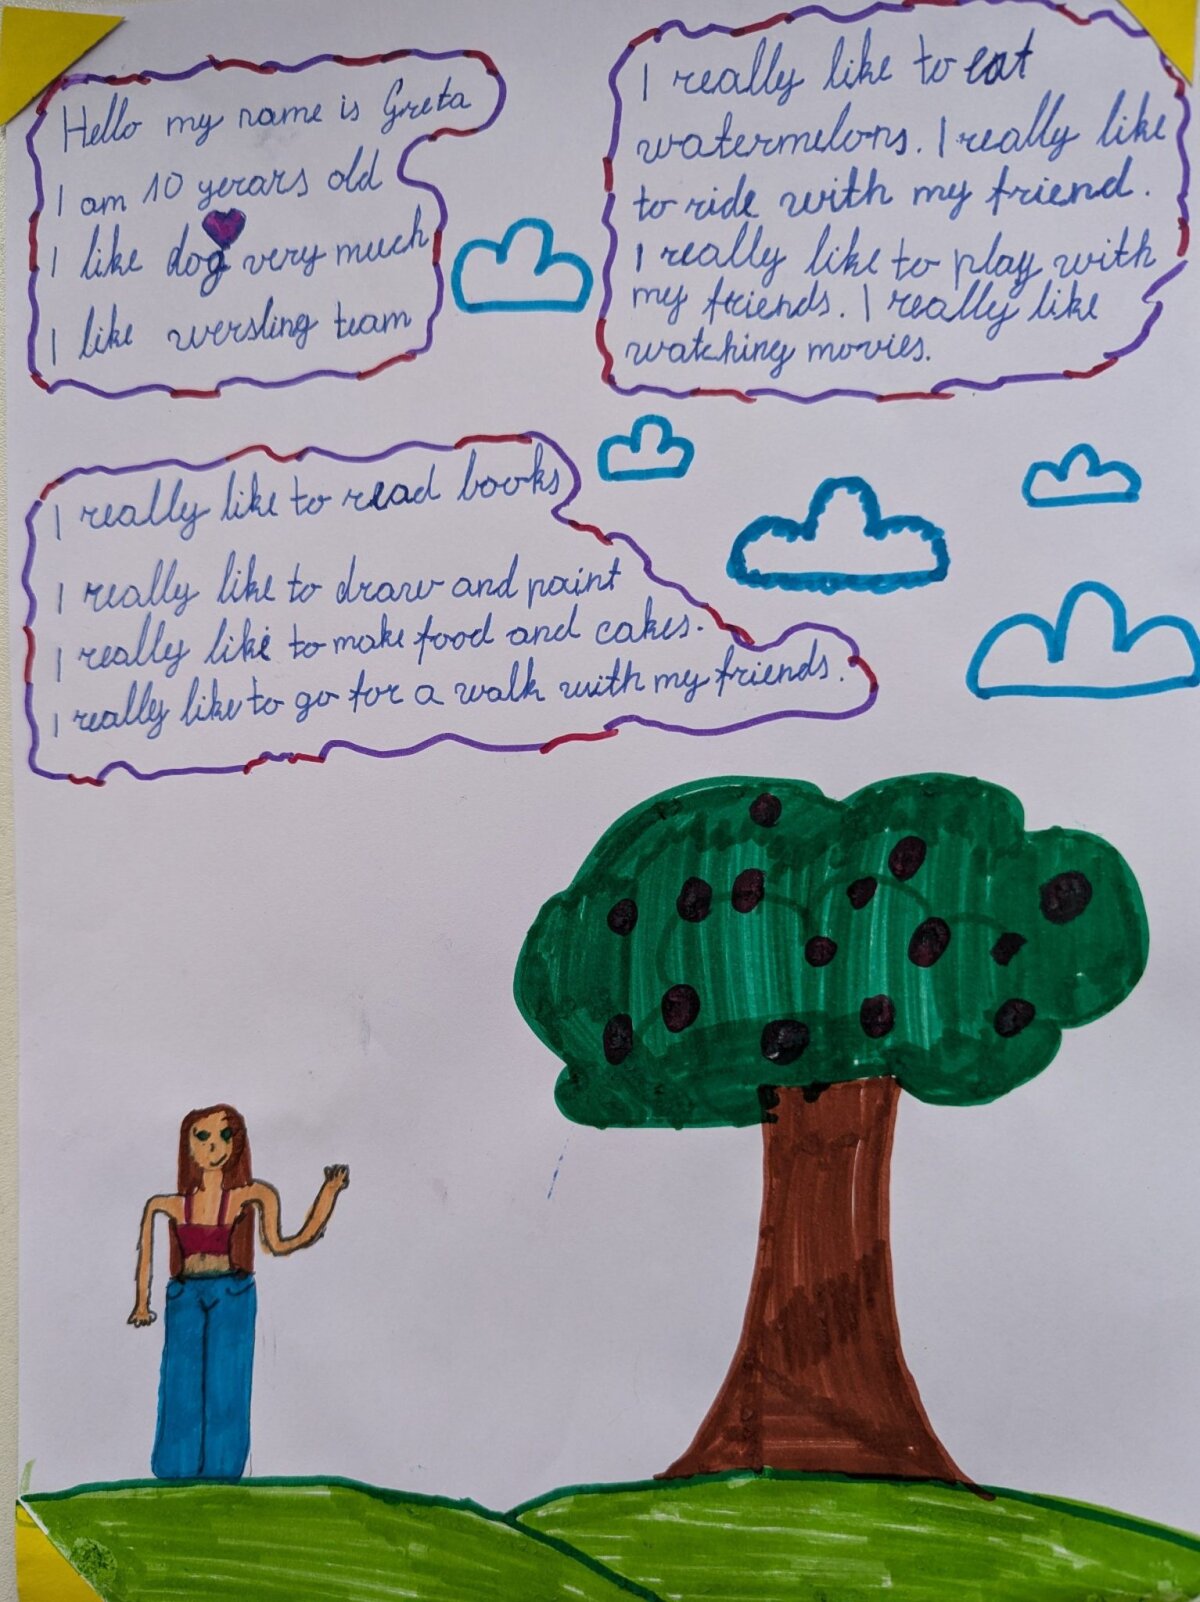 Hello my name is Greta
I am 10 yerars old
I like dog very much
I like wersling team
I really like to eat
watermelons. I really like
to ride with my friend.
I really like to play with
my friends. I really like
watching movies.
I really like to read books
I really like to draw and paint
I really like to make food and cakes.
I really like to go for a walk with my friends.